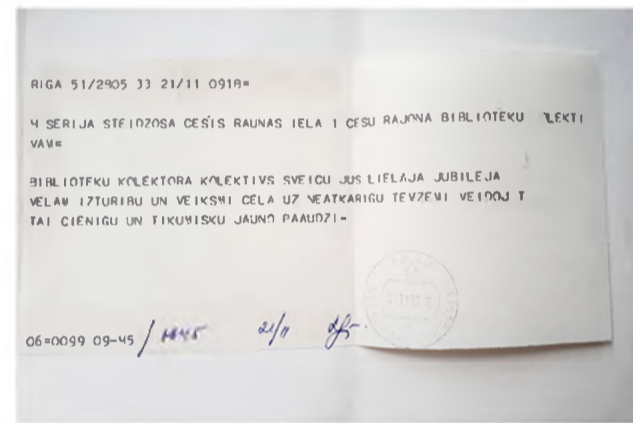 RIGA 51/2905 33 21/11 0918=
4 SERIJA STEIDZOSA CESIS RAUNAS IELA 1 CESU RAJONA BIBLIOTEKU LEKTI
VAM=
BIBLIOTEKU KOLEKTORA KOLEKTIVS SVEICU JUS LIELAJA JUBILEJA
VELAM IZTURIBU UN VEIKSMI CELA UZ NEATKARIGU TEVZEMI VEIDOJ T
TAI CIENIGU UN TIKUMISKU JAUNO PAAUDZI=
06=0099 09-45 / 21/11